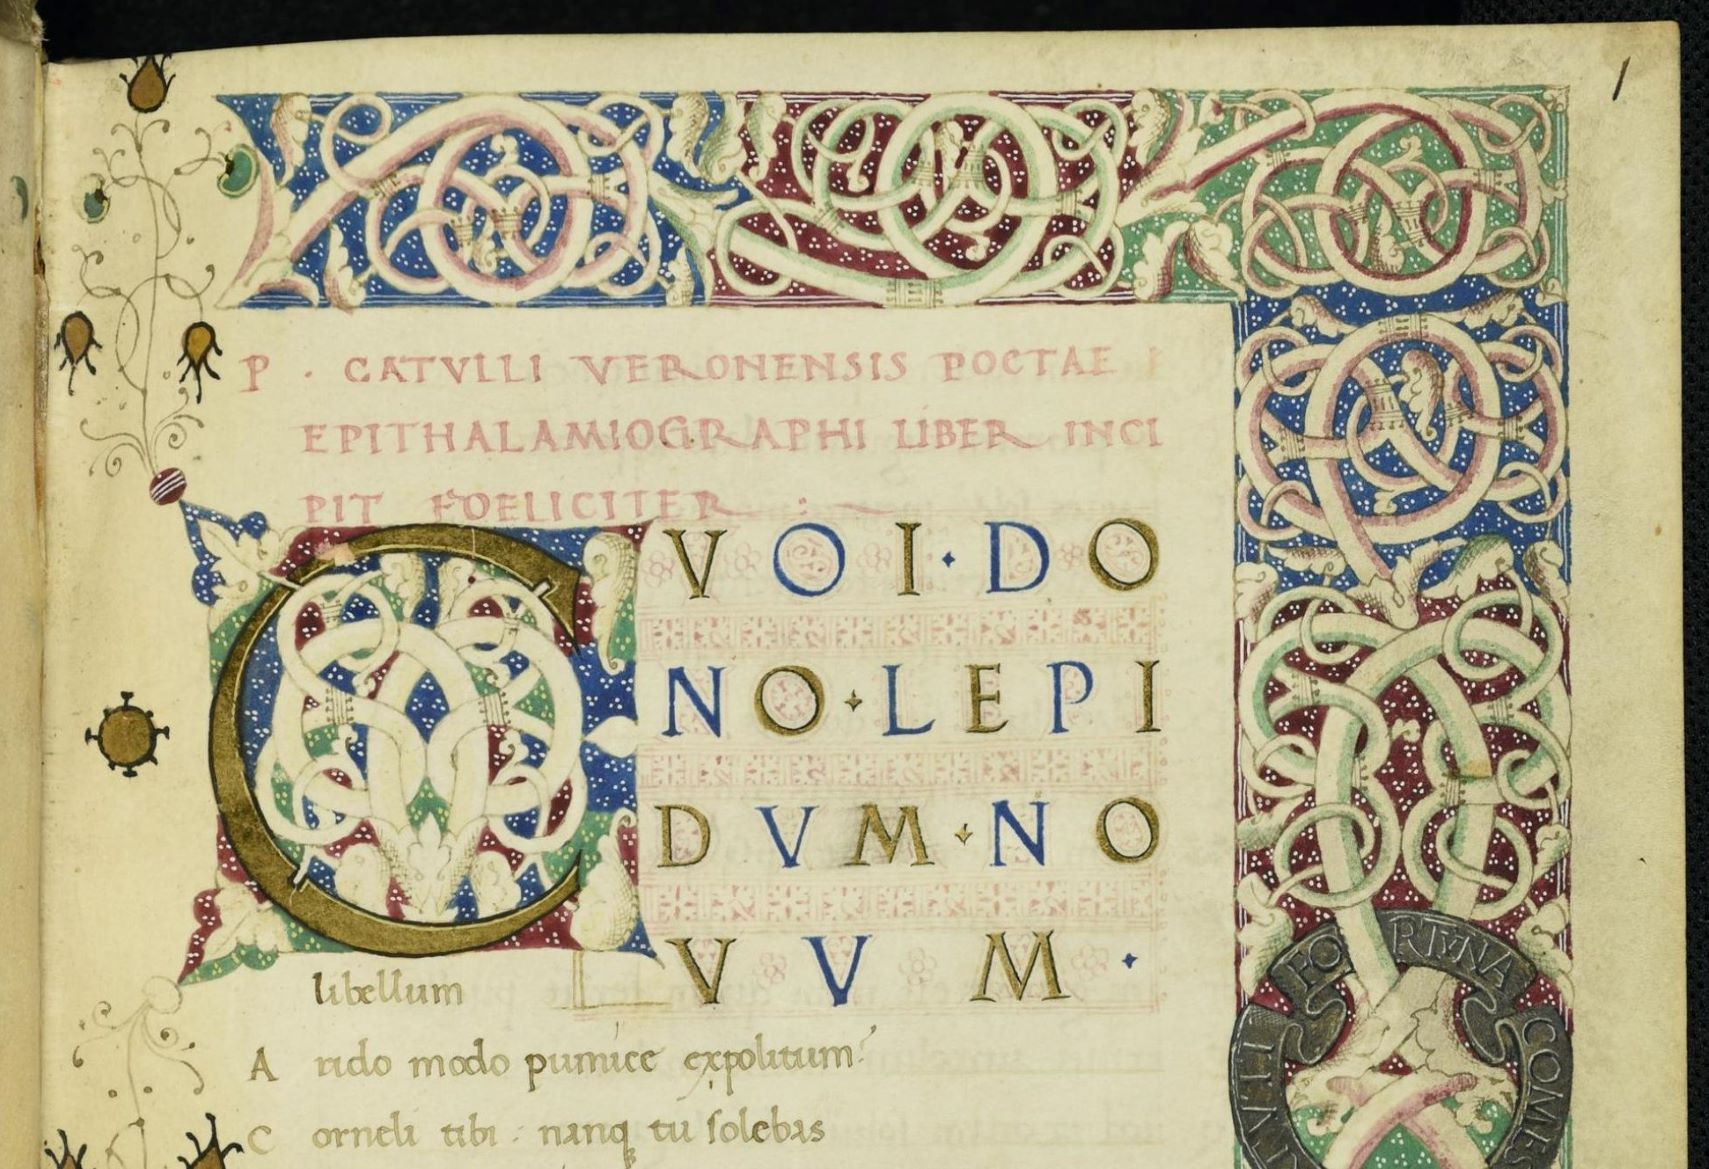 1
P · CATVLLI VERONENSIS POETAE
EPITHALAMIOGRAPHI LIBER INCI
PIT FOELICITER : ~
CVOI · DO
NO · LEPI
DVM · NO
VVM ·
libellum
A rido modo pumice expolitum?
C orneli tibi : nanq tu solebas
FORTVNA
COMES
VIRTVTI